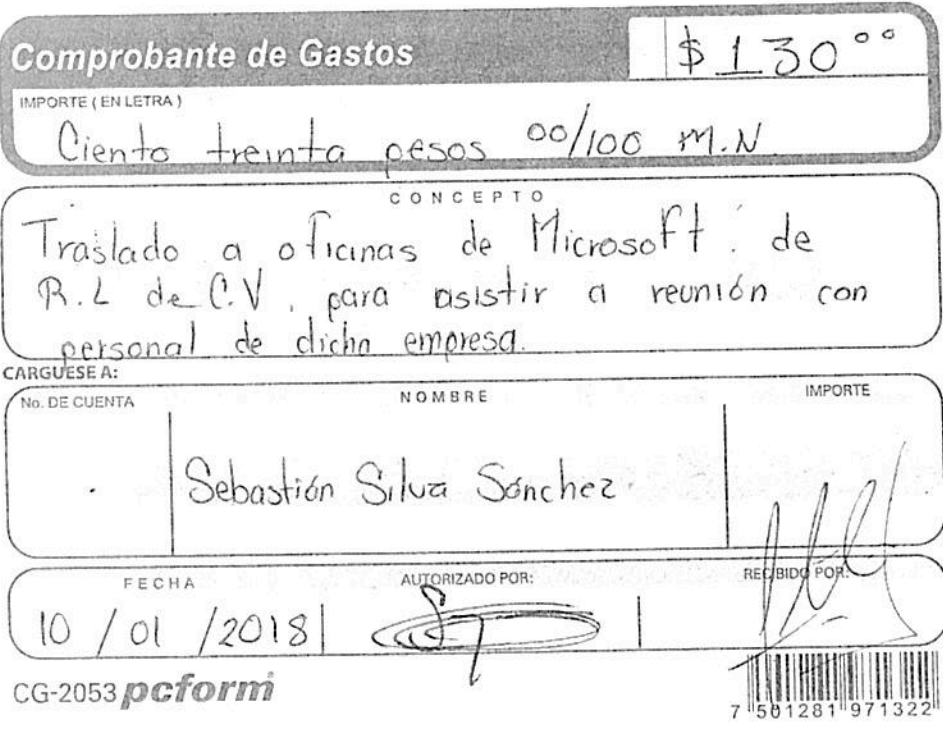 Comprobante de Gastos
$130 00
IMPORTE ( EN LETRA )
Ciento treinta pesos 00/100 M.N
CONCEPTO
Traslado a oficinas de Microsoft. de
R.L de C.V, para asistir a reunión con
personal de dicha empresa.
CARGUESE A:
No. DE CUENTA NOMBRE IMPORTE
Sebastián Silva Sánchez
FECHA AUTORIZADO POR: RECIBIDO POR:
10 / 01 /2018
CG-2053 pcform
7 501281 971322